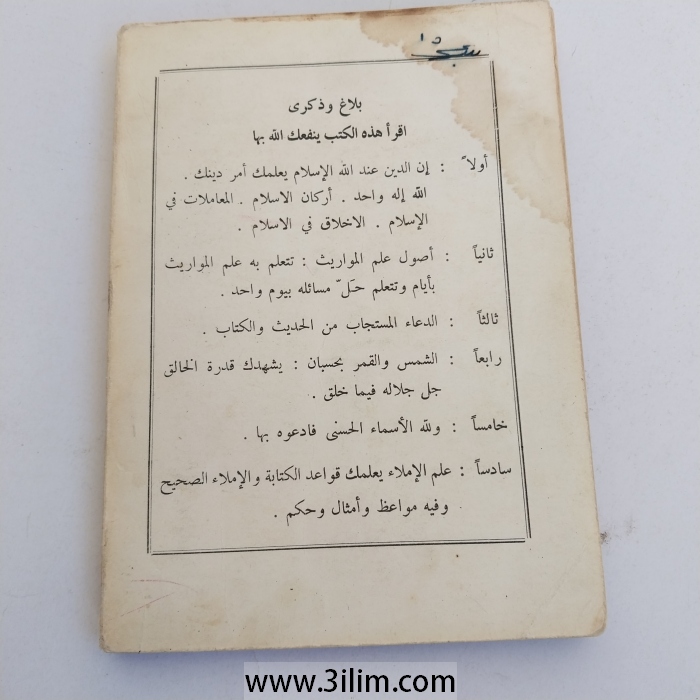 بلاغ وذكرى
اقرأ هذه الكتب ينفعك الله بها
أولاً : إن الدين عند الله الإسلام يعلمك أمر دينك .
الله إله واحد . أركان الاسلام . المعاملات في
الإسلام . الاخلاق في الاسلام .
ثانياً : أصول علم المواريث : تتعلم به علم المواريث
بأيام وتتعلم حلّ مسائله بيوم واحد .
ثالثاً : الدعاء المستجاب من الحديث والكتاب .
رابعاً : الشمس والقمر بحسبان : يشهدك قدرة الخالق
جل جلاله فيما خلق .
خامساً : ولله الأسماء الحسنى فادعوه بها .
سادساً : علم الإملاء يعلمك قواعد الكتابة والإملاء الصحيح
وفيه مواعظ وأمثال وحكم .
www.3ilim.com